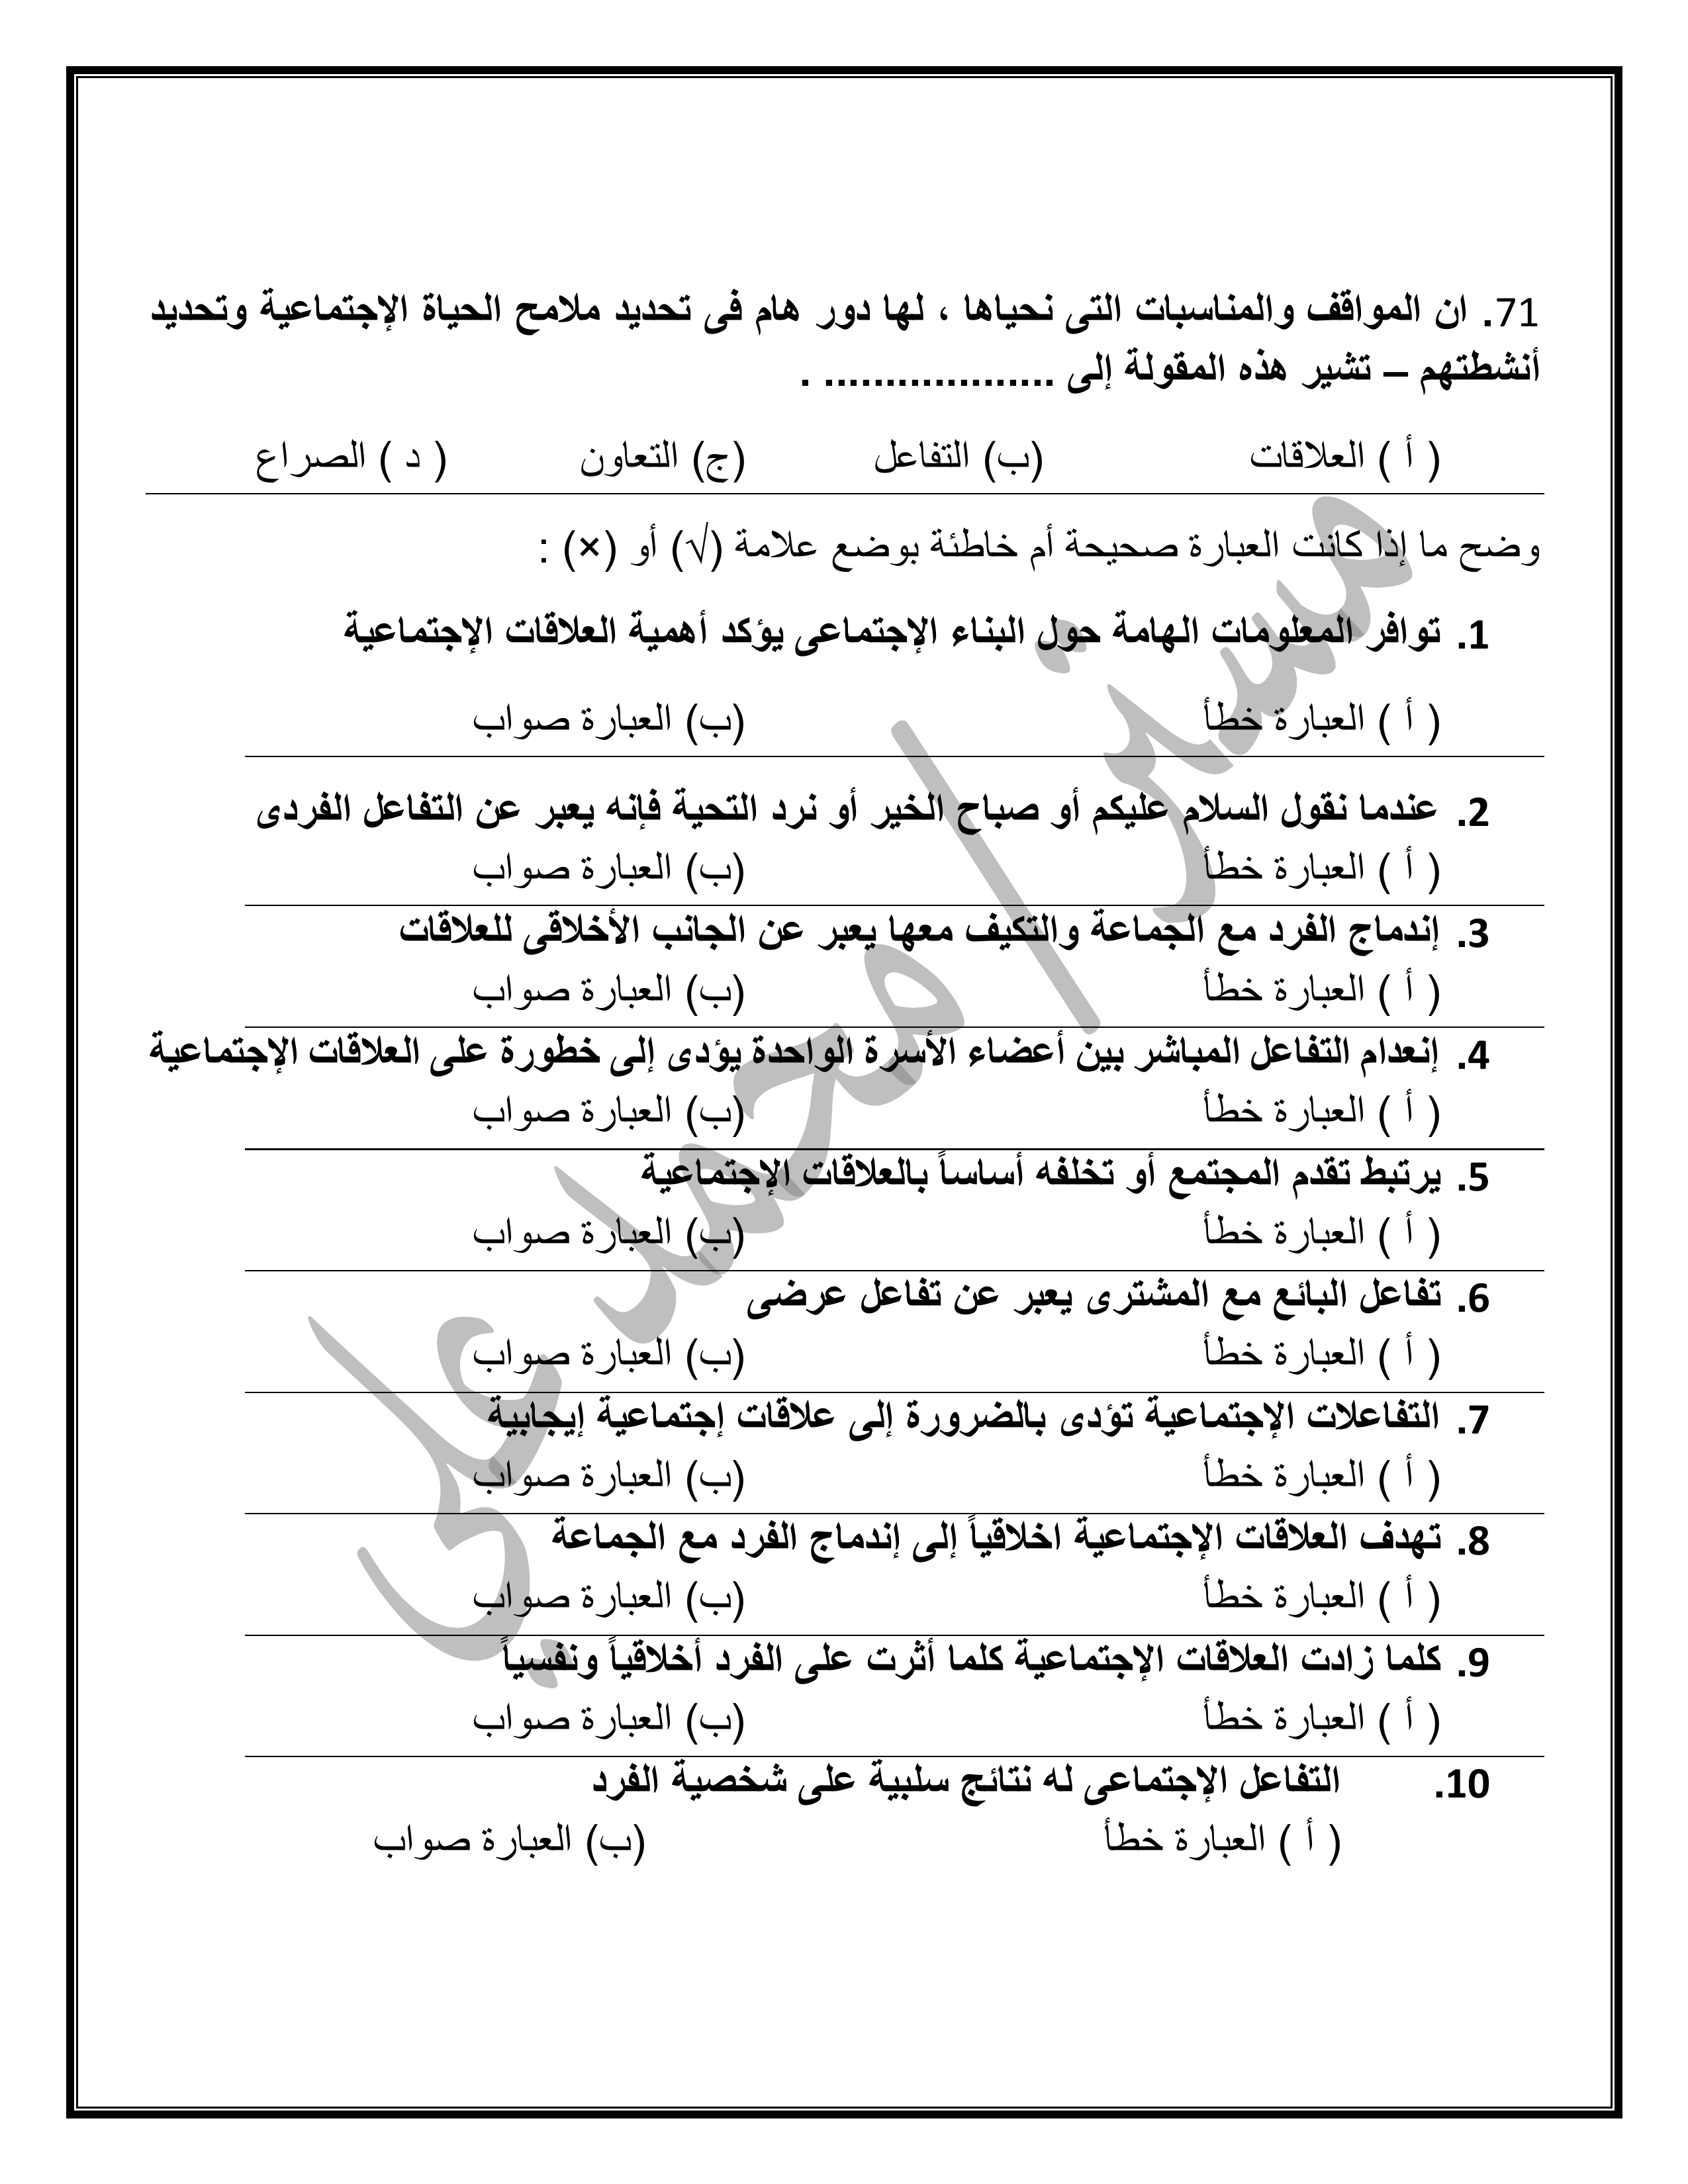 71. ان المواقف والمناسبات التى نحياها ، لها دور هام فى تحديد ملامح الحياة الإجتماعية وتحديد
أنشطتهم – تشير هذه المقولة إلى ................... .
( أ ) العلاقات (ب) التفاعل (ج) التعاون ( د ) الصراع
وضح ما إذا كانت العبارة صحيحة أم خاطئة بوضع علامة (√) أو (×) :
1. توافر المعلومات الهامة حول البناء الإجتماعى يؤكد أهمية العلاقات الإجتماعية
( أ ) العبارة خطأ (ب) العبارة صواب
2. عندما نقول السلام عليكم أو صباح الخير أو نرد التحية فإنه يعبر عن التفاعل الفردى
( أ ) العبارة خطأ (ب) العبارة صواب
3. إندماج الفرد مع الجماعة والتكيف معها يعبر عن الجانب الأخلاقى للعلاقات
( أ ) العبارة خطأ (ب) العبارة صواب
4. إنعدام التفاعل المباشر بين أعضاء الأسرة الواحدة يؤدى إلى خطورة على العلاقات الإجتماعية
( أ ) العبارة خطأ (ب) العبارة صواب
5. يرتبط تقدم المجتمع أو تخلفه أساساً بالعلاقات الإجتماعية
( أ ) العبارة خطأ (ب) العبارة صواب
6. تفاعل البائع مع المشترى يعبر عن تفاعل عرضى
( أ ) العبارة خطأ (ب) العبارة صواب
7. التفاعلات الإجتماعية تؤدى بالضرورة إلى علاقات إجتماعية إيجابية
( أ ) العبارة خطأ (ب) العبارة صواب
8. تهدف العلاقات الإجتماعية اخلاقياً إلى إندماج الفرد مع الجماعة
( أ ) العبارة خطأ (ب) العبارة صواب
9. كلما زادت العلاقات الإجتماعية كلما أثرت على الفرد أخلاقياً ونفسياً
( أ ) العبارة خطأ (ب) العبارة صواب
10. التفاعل الإجتماعى له نتائج سلبية على شخصية الفرد
( أ ) العبارة خطأ (ب) العبارة صواب
مستر/محمد علي